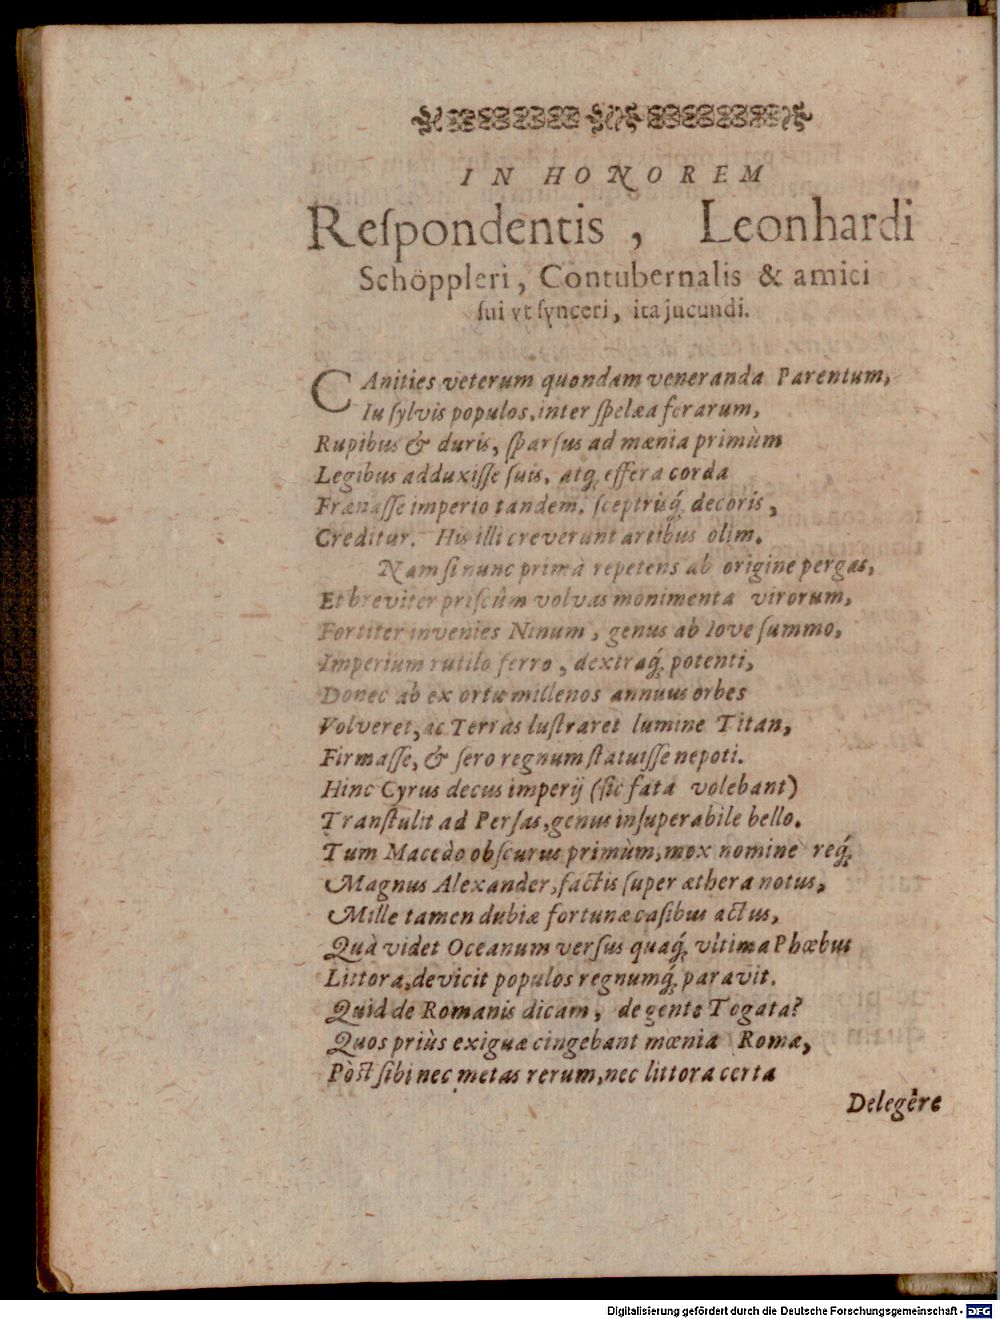 IN HONOREM
Reſpondentis, Leonhardi
Schöppleri, Contubernalis & amici
ſui vt ſynceri, ita jucundi.
CAnities veterum quondam veneranda Parentum,
Iu ſylvis populos, inter ſpelæa ferarum,
Rupibus & duris, ſparſus ad mænia primùm
Legibus adduxiſſe ſuis, atq́; effera corda
Frænaſſe imperio tandem, ſceptriq́; decoris,
Creditur. His illi creverunt artibus olim.
Nam ſi nunc primà repetens ab origine pergas,
Et breviter priſcûm volvas monimenta virorum,
Fortiter invenies Ninum, genus ab Iove ſummo,
Imperium rutilo ferro, dextraq́; potenti,
Donec ab ex ortu millenos annuus orbes
Volveret, ac Terràs luſtraret lumine Titan,
Firmaſſe, & ſero regnum ſtatuiſſe nepoti.
Hinc Cyrus decus imperij (ſic fata volebant)
Tranſtulit ad Perſas, genus inſuperabile bello.
Tum Macedo obſcurus primùm, mox nomine req́;
Magnus Alexander, factis ſuper æthera notus,
Mille tamen dubiæ fortunæ caſibus actus,
Quà videt Oceanum verſus quaq́; vltima Phœbus
Littora, devicit populos regnumq́; paravit.
Quid de Romanis dicam, de gente Togata?
Quos priùs exiguæ cingebant mœnia Romæ,
Pòst ſibi nec metas rerum, nec littora certa
Delegêre
Digitalisierung gefördert durch die Deutsche Forschungsgemeinschaft - DFG